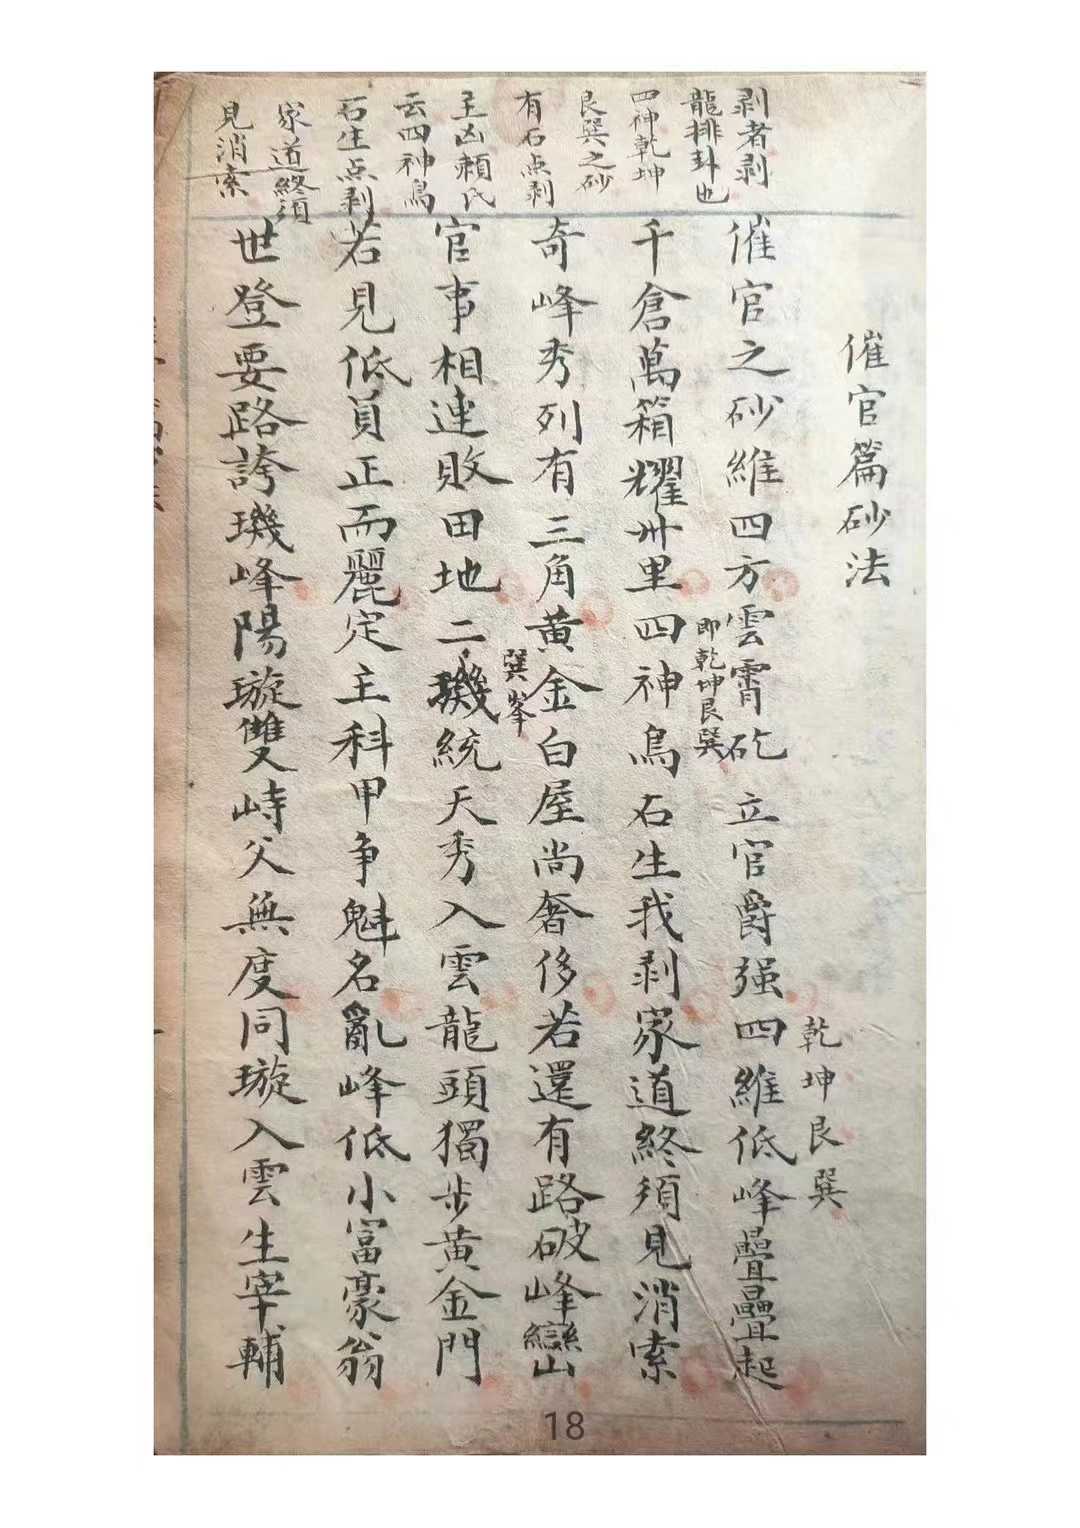 剥者剥
龍排卦也
四神乾坤
艮巽之砂
有石点剥
主凶賴氏
云四神鳥
石生点剥
家道終須
見消索
催官篇砂法
乾坤艮巽
催官之砂維四方雲霄矻立官爵强四維低峰疊疊起
即乾坤艮巽
千倉萬箱耀卅里四神鳥石生我剥家道終須見消索
奇峰秀列有三角黄金白屋尚奢侈若還有路破峰巒
巽峯
官事相連敗田地二璣統天秀入雲龍頭獨步黄金門
若見低員正而麗定主科甲争魁名亂峰低小富豪翁
世登要路誇璣峰陽璇雙峙父無度同璇入雲生宰輔
18